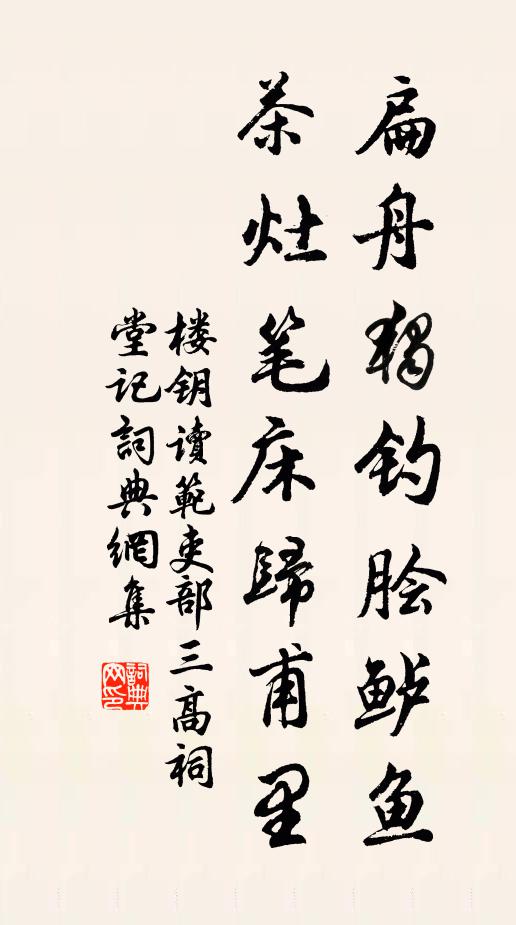 扁舟獨钓脍鲈鱼
茶灶笔床歸甫里
楼钥读範吏部三高祠
堂记詞典網集
詞典
网印